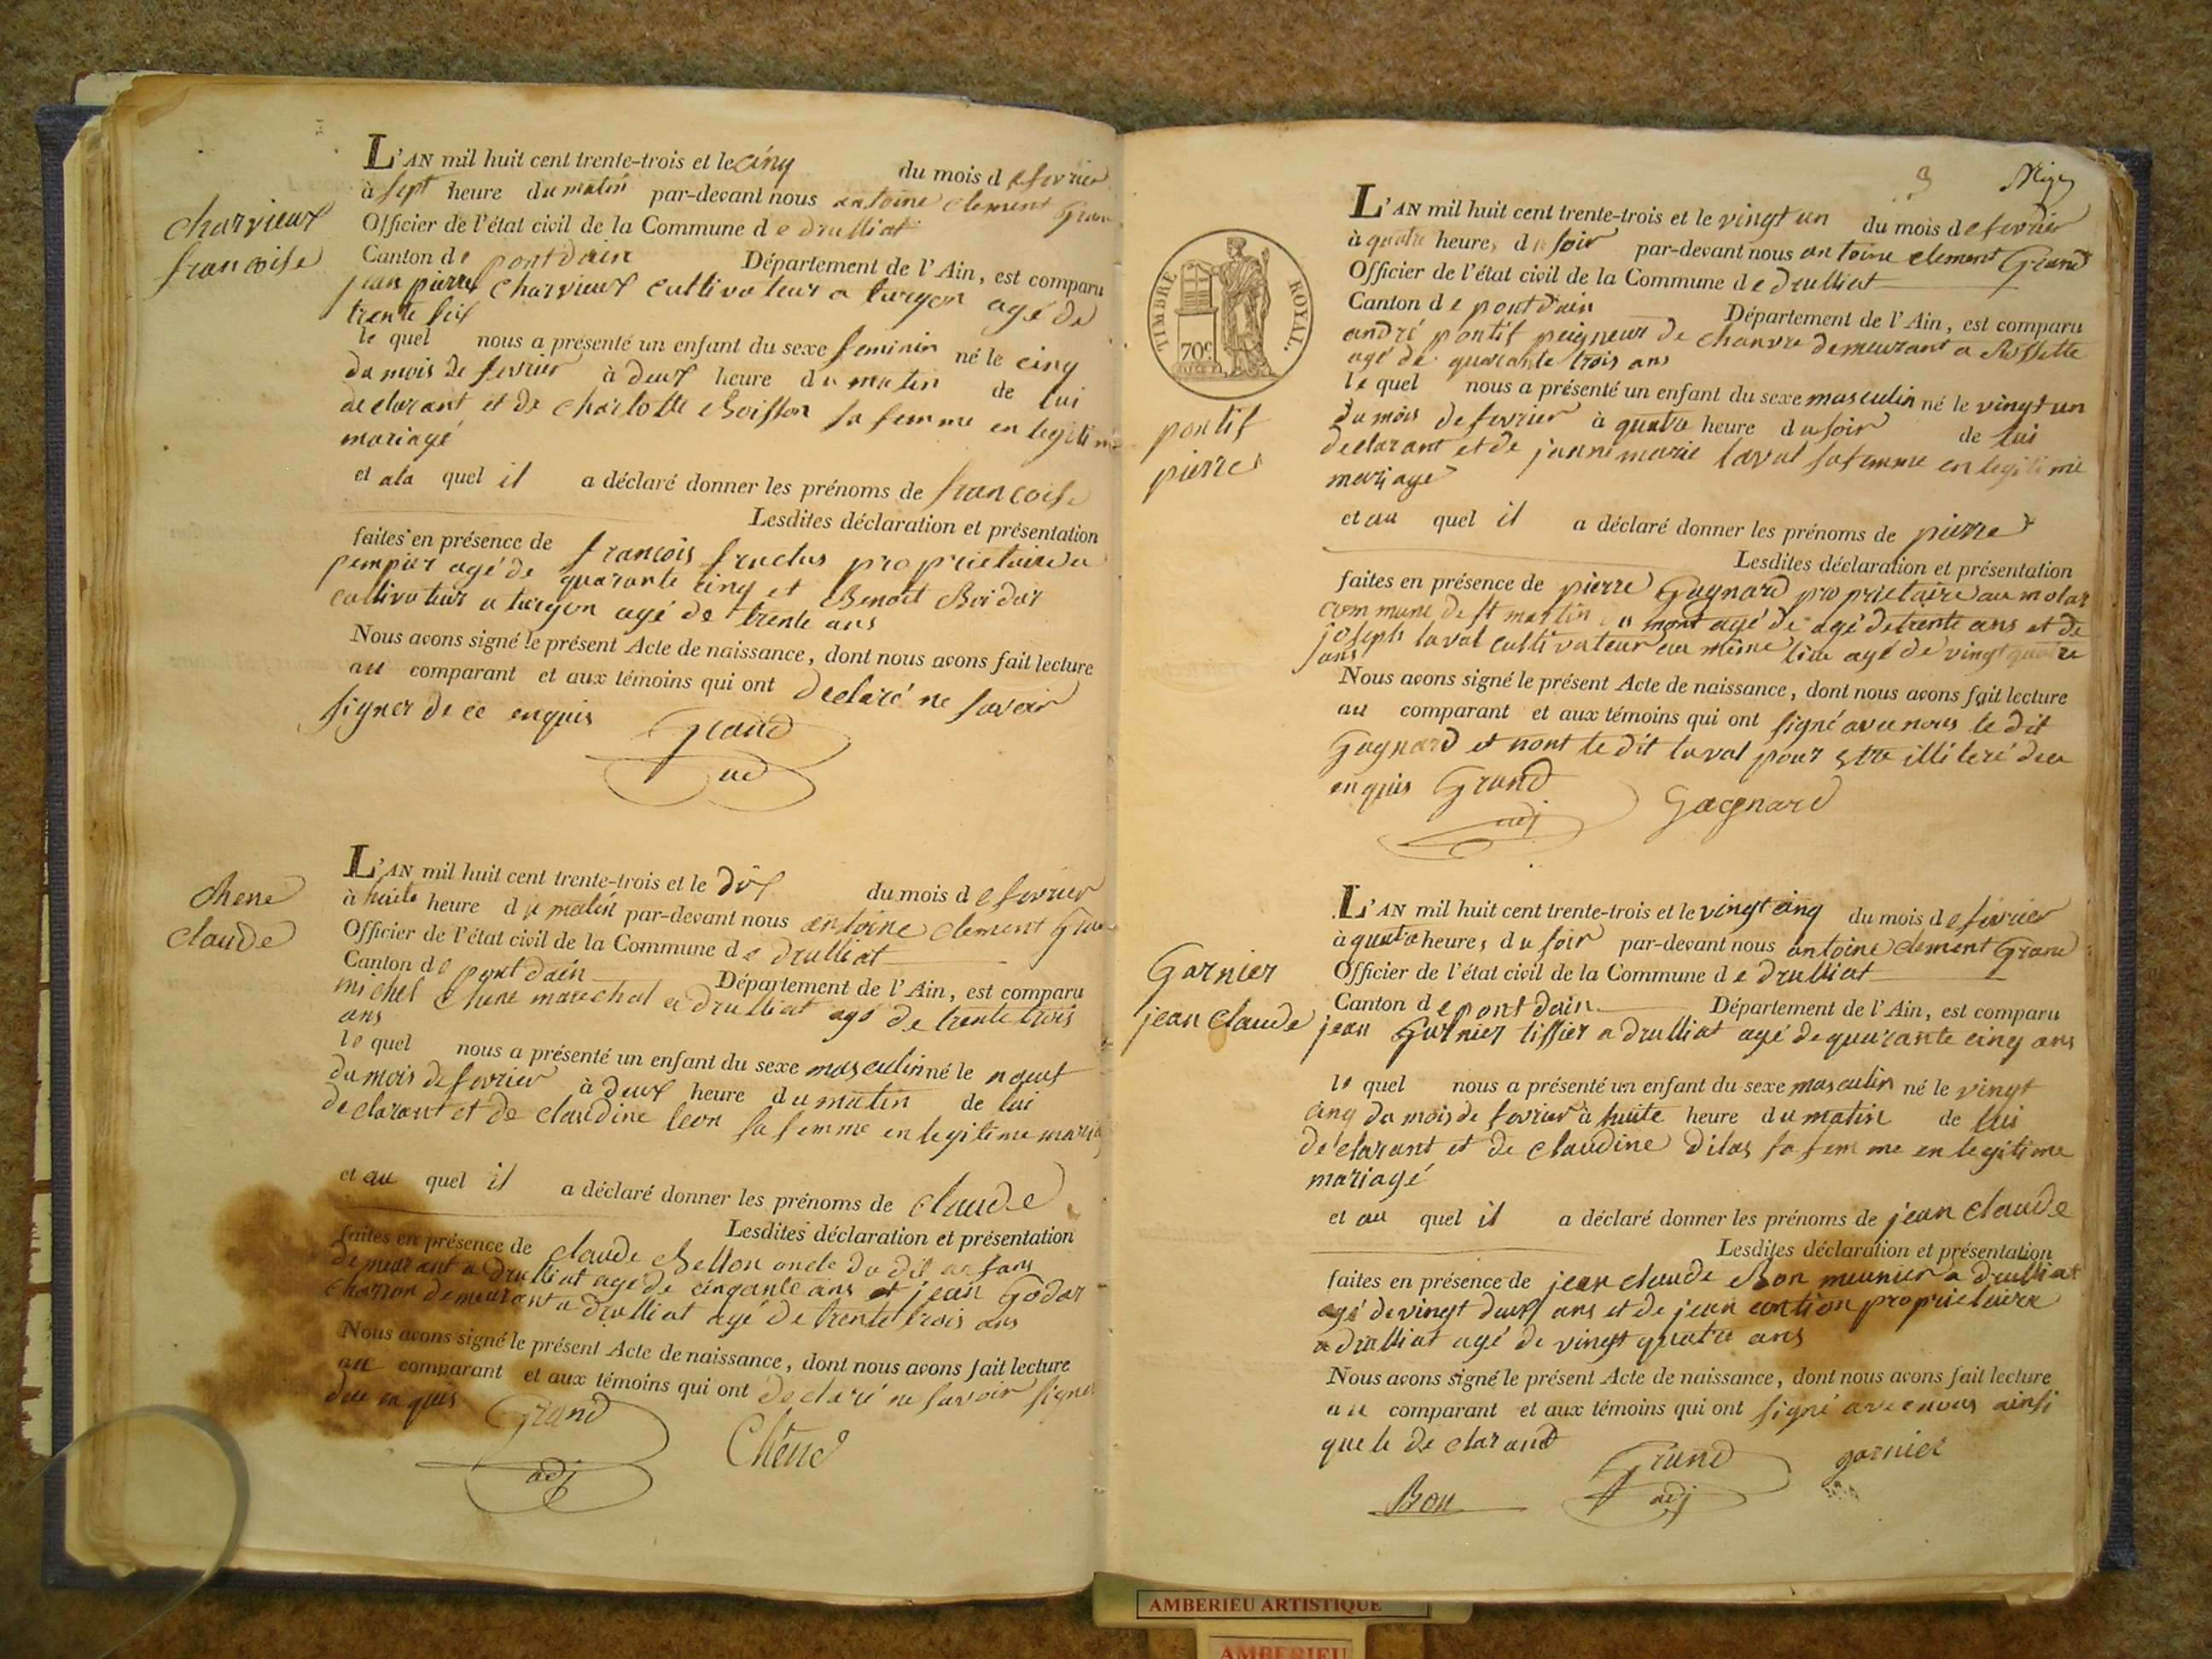 charvieux
francoise
L'AN mil huit cent trente-trois et le cinq du mois de fevrier
à sept heure du matin par-devant nous antoine clement Gran
Officier de l'état civil de la Commune de druilliat
Canton de pontdain Département de l'Ain, est comparu
jean pierre charvieux cultivateur a turgon agé de
trente six
le quel nous a présenté un enfant du sexe feminin né le cinq
du mois de fevrier à deux heure du matin de lui
declarant et de charlotte Boisson sa femme en legitime
mariagé
et ala quel il a déclaré donner les prénoms de francoise
Lesdites déclaration et présentation
faites en présence de francois fructus proprietaire a
agé de quarante cinq et Benoit
cultivateur a turgon agé de trente ans
Nous avons signé le présent Acte de naissance, dont nous avons fait lecture
au comparant et aux témoins qui ont declaré ne savoir
signer de ce enquis
Grand
adj
chene
claude
L'AN mil huit cent trente-trois et le dix du mois de fevrier
à huite heure du matin par-devant nous antoine clement Gran
Officier de l'état civil de la Commune de drulliat
Canton de pontdain Département de l'Ain, est comparu
michel chene marechal a drulliat agé de trente trois
ans
le quel nous a présenté un enfant du sexe masculin né le neuf
du mois de fevrier à deux heure du matin de lui
declarant et de claudine leon sa femme en legitime mariag
et au quel il a déclaré donner les prénoms de claude
Lesdites déclaration et présentation
faites en présence de claude Bellon oncle du dit enfans
demeurant a drulliat agé de cinqante ans et jean Godar
charron demeurant a drulliat agé de trente trois ans
Nous avons signé le présent Acte de naissance, dont nous avons fait lecture
au comparant et aux témoins qui ont declaré ne savoir signer
deu enquis
Grand
adj
Chene
3
TIMBRE ROYAL.
70c
pontif
pierre
L'AN mil huit cent trente-trois et le vingt un du mois de fevrier
à quatre heures du soir par-devant nous antoine clement Grand
Officier de l'état civil de la Commune de drulliat
Canton de pontdain Département de l'Ain, est comparu
andré pontif peigneur de chanvre demeurant a Rossette
agé de quarante trois ans
le quel nous a présenté un enfant du sexe masculin né le vingt un
du mois de fevrier à quatre heure du soir de lui
declarant et de janne marie laval sa femme en legitime
mariage
et au quel il a déclaré donner les prénoms de pierre
Lesdites déclaration et présentation
faites en présence de pierre Gagnard proprietaire au molar
commune de st martin du mont agé de agé de trente ans et de
joseph laval cultivateur au même lieu agé de vingt quatre
ans
Nous avons signé le présent Acte de naissance, dont nous avons fait lecture
au comparant et aux témoins qui ont signé avec nous le dit
Gagnard et nont le dit laval pour etre illiteré deu
enquis
Grand
adj
Gagnard
Garnier
jean claude
L'AN mil huit cent trente-trois et le vingt cinq du mois de fevrier
à quatre heures du soir par-devant nous antoine clement Grand
Officier de l'état civil de la Commune de drulliat
Canton de pont dain Département de l'Ain, est comparu
jean Garnier tissier a drulliat agé de quarante cinq ans
le quel nous a présenté un enfant du sexe masculin né le vingt
cinq du mois de fevrier à huite heure du matin de lui
declarant et de claudine dilas sa femme en legitime
mariagé
et au quel il a déclaré donner les prénoms de jean claude
Lesdites déclaration et présentation
faites en présence de jean claude Bon meunier a drulliat
agé de vingt deux ans et de jean contion proprietaire
a drulliat agé de vingt quatre ans
Nous avons signé le présent Acte de naissance, dont nous avons fait lecture
au comparant et aux témoins qui ont signé avec nous ainsi
que le declarand
Bon
Grand
adj
garnier
AMBERIEU ARTISTIQUE
AMBERIEU